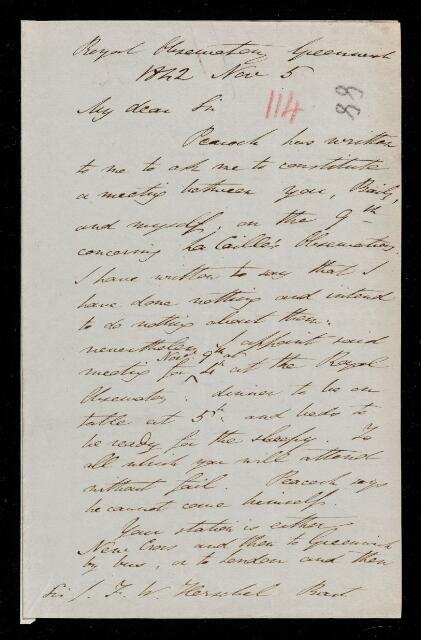 Royal Observatory Greenwich
1842 Nov 5
My dear Sir
114
88
Peacock has written
to me to ask me to constitute
a meeting between you, Baily,
and myself, on the 9th
concerning La Caille's Observations.
I have written to say that I
have done nothing and intend
to do nothing about them.
nevertheless I appoint said
Nov. 9th at
meeting for 4h at the Royal
Observatory: dinner to be on
table at 5h and beds to
be ready for the sleepy. To
all which you will attend
without fail. Peacock says
he cannot come himself.
Your station is either
New Cross and then to Greenwich
by bus, or to London and then
Sir J. F. W. Herschel Bart